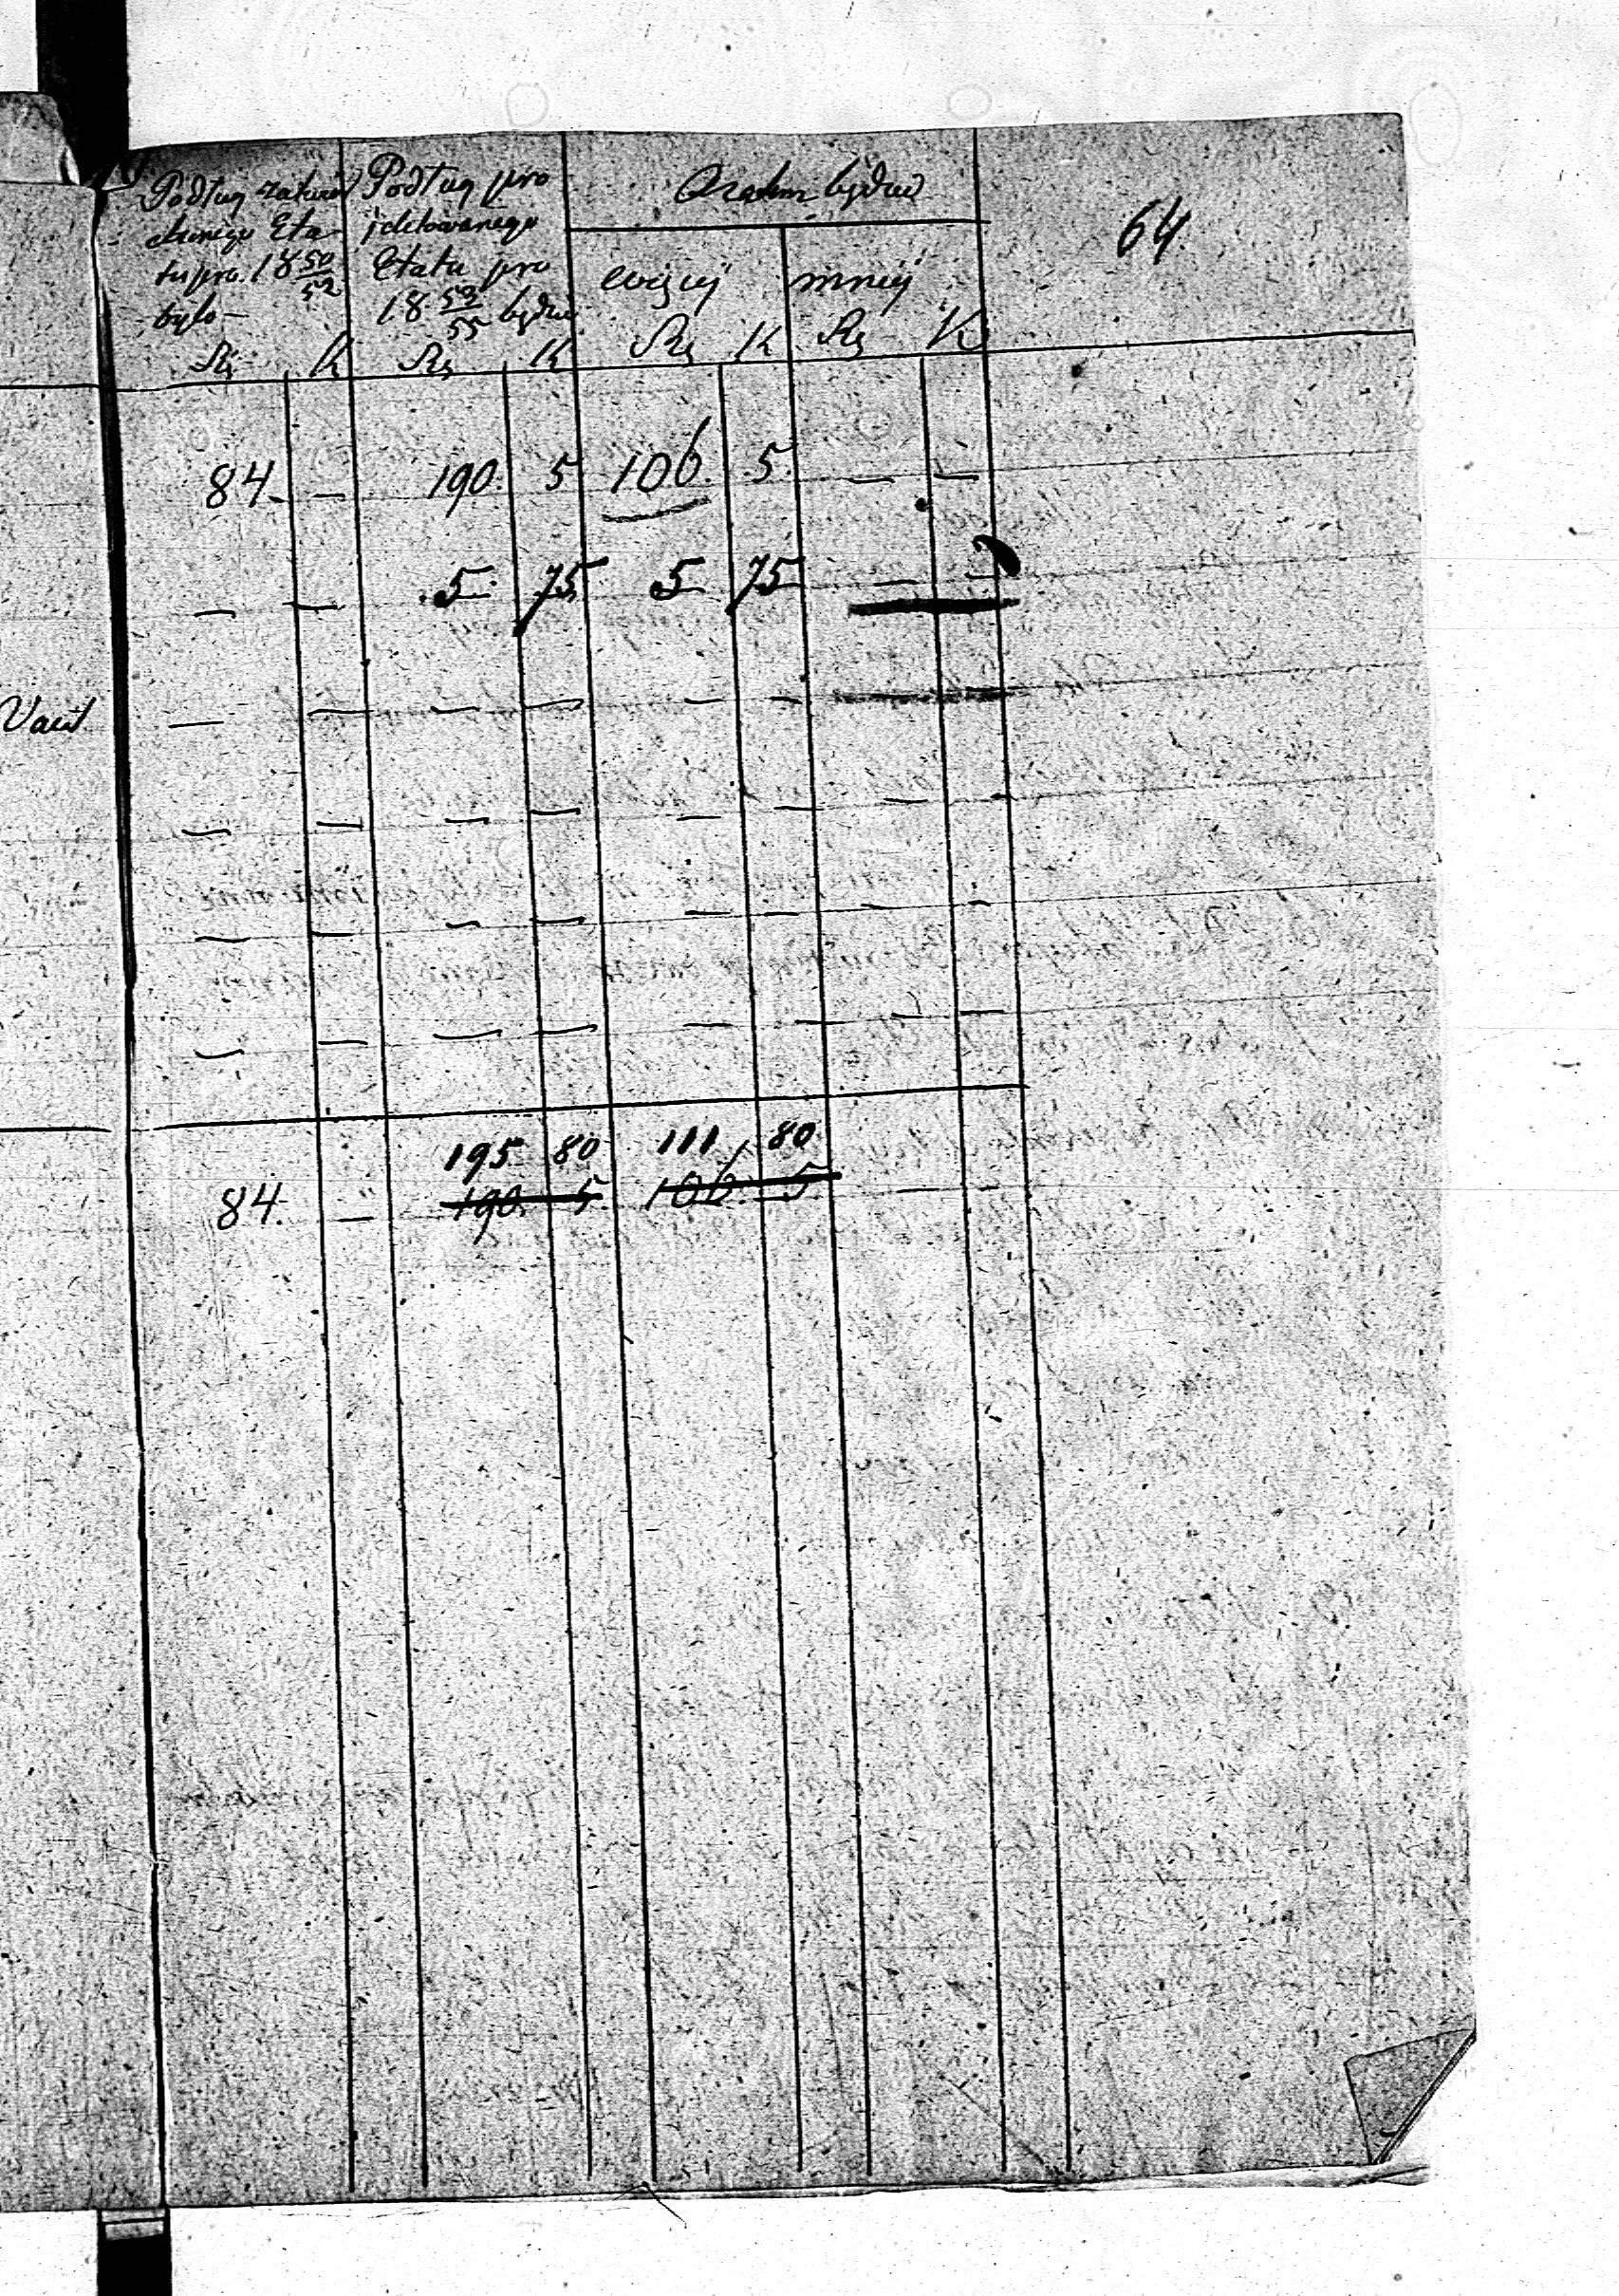 64.
Podług zatwier
dzonego Eta
tu pro. 18 50/52
było
Podług pro
jektowanego
Etatu pro
18 53/55 będzie
Zatem będzie
więcej mniej
Rs K Rs K Rs K Rs K
84. — 190. 5 106. 5. — —
— — 5. 75 5 75 — —
Vacat — — — — — — — —
— — — — — — — —
— — — — — — — —
— — — — — — — —
195 80 111 80
84. — 190. 5. 106. 5 — —